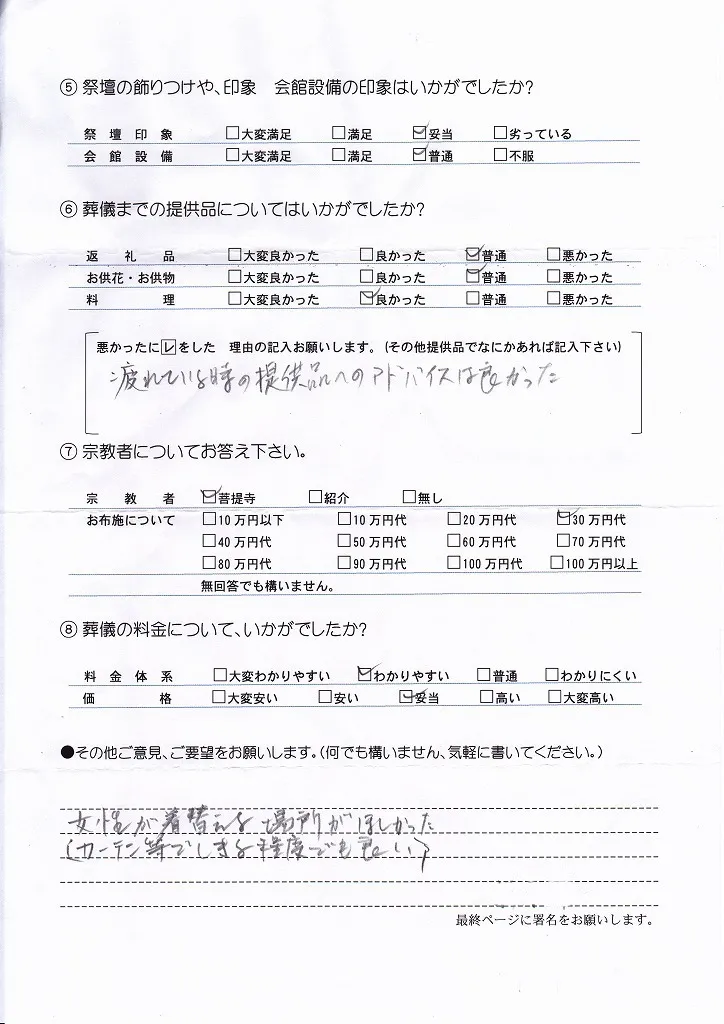 ⑤ 祭壇の飾りつけや、印象　会館設備の印象はいかがでしたか?
祭壇印象 □大変満足 □満足 ☑妥当 □劣っている
会館設備 □大変満足 □満足 ☑普通 □不服
⑥ 葬儀までの提供品についてはいかがでしたか?
返礼品 □大変良かった □良かった ☑普通 □悪かった
お供花・お供物 □大変良かった □良かった ☑普通 □悪かった
料理 □大変良かった ☑良かった □普通 □悪かった
悪かったに☑をした　理由の記入お願いします。(その他提供品でなにかあれば記入下さい)
疲れている時の提供品へのアドバイスは良かった
⑦ 宗教者についてお答え下さい。
宗教者 ☑菩提寺 □紹介 □無し
お布施について □10万円以下 □10万円代 □20万円代 ☑30万円代
□40万円代 □50万円代 □60万円代 □70万円代
□80万円代 □90万円代 □100万円代 □100万円以上
無回答でも構いません。
⑧ 葬儀の料金について、いかがでしたか?
料金体系 □大変わかりやすい ☑わかりやすい □普通 □わかりにくい
価格 □大変安い □安い ☑妥当 □高い □大変高い
●その他ご意見、ご要望をお願いします。(何でも構いません、気軽に書いてください。)
女性が着替える場所がほしかった
(カーテン等でしきる程度でも良い)
最終ページに署名をお願いします。